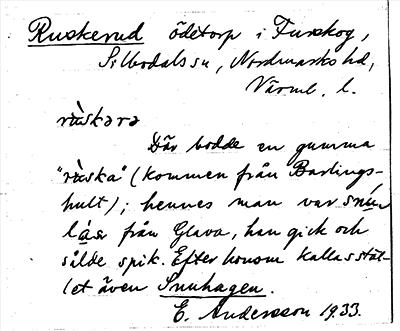 Ruskerud ödetorp i Furskog,
Silbodals sn, Nordmarks hd,
Värml. l.
rùskərə
Där bodde en gumma
"rùska" (kommen från Barlings-
hult); hennes man var snu-
làsr från Glava, han gick och
sålde spik. Efter honom kallas stäl-
let även Snuhagen.
E. Andersson 1933.